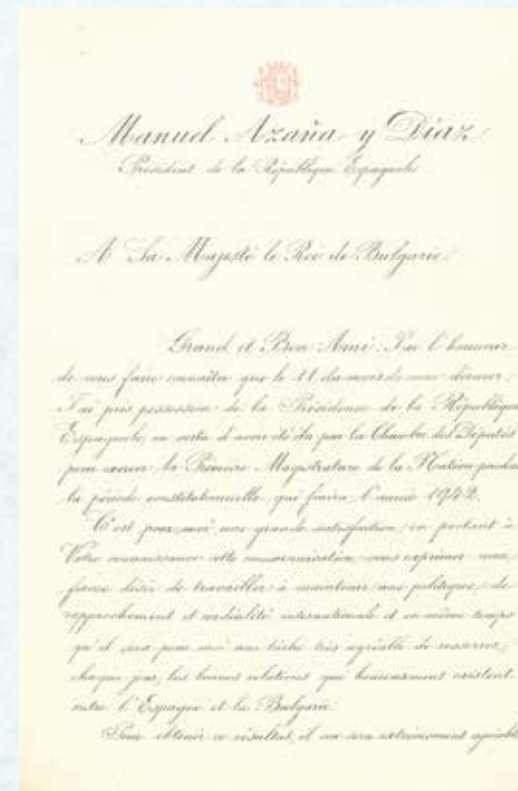 Manuel Azaña y Díaz
Président de la République Espagnole
A Sa Majesté le Roi de Bulgarie
Grand et Bon Ami: J'ai l'honneur
de vous faire connaître que le 11 du mois de mai dernier,
J'ai pris possession de la Présidence de la République
Espagnole, en vertu d'avoir été élu par la Chambre des Députés
pour exercer la Première Magistrature de la Nation pendant
la période constitutionnelle qui finira l'année 1942.
C'est pour moi une grande satisfaction, en portant à
Votre connaissance cette communication, vous exprimer mon
désir de travailler à maintenir une politique de
rapprochement et cordialité internationale et en même temps
qu'il sera pour moi une tâche très agréable de resserrer,
chaque jour, les bonnes relations qui heureusement existent
entre l'Espagne et la Bulgarie.
Pour obtenir ce résultat, il me sera extrêmement agréable